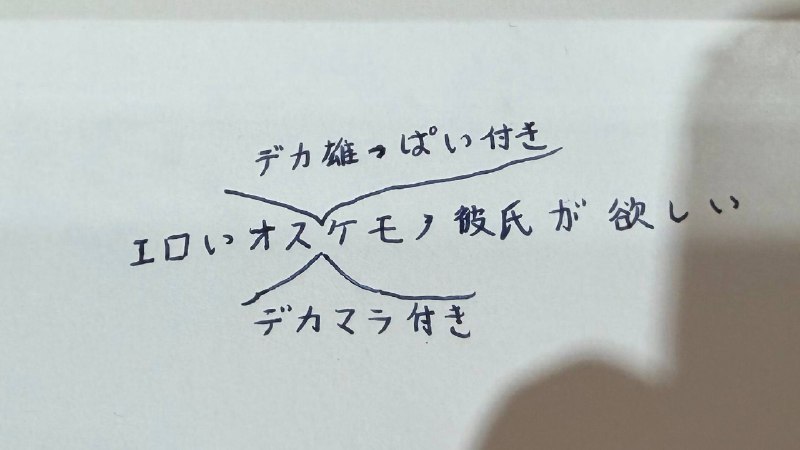 デカ雄っぱい付き
エロいオスケモノ彼氏が欲しい
デカマラ付き